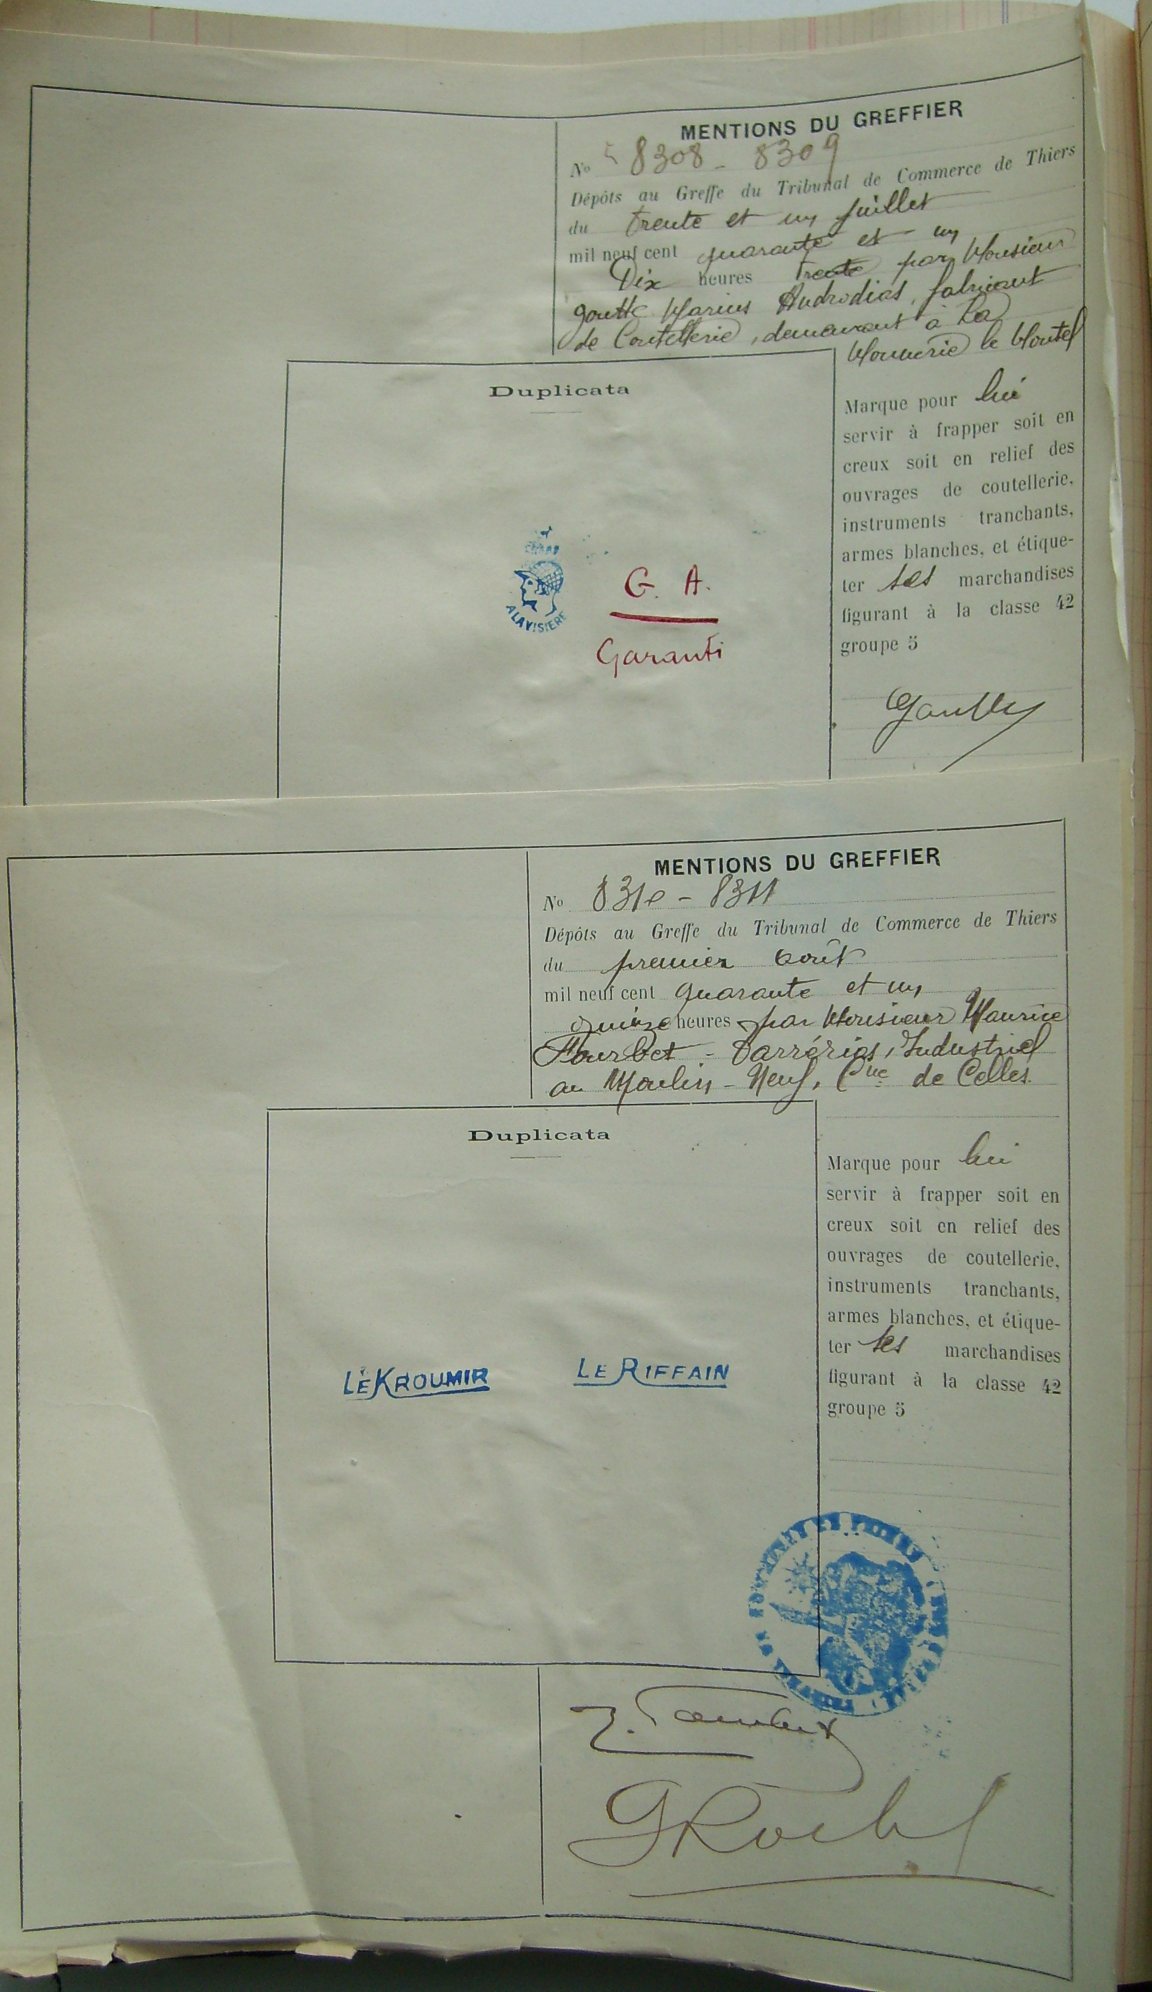 MENTIONS DU GREFFIER
No 8308 - 8309
Dépôts au Greffe du Tribunal de Commerce de Thiers
du trente et un juillet
mil neuf cent quarante et un
Dix heures trente par Monsieur
Goutte Marius Androdias, fabricant
de Coutellerie, demeurant à La
Monnerie le Montel
Duplicata
Marque pour lui
servir à frapper soit en
creux soit en relief des
ouvrages de coutellerie,
instruments tranchants,
armes blanches, et étique-
ter ses marchandises
figurant à la classe 42
groupe 5
A LA VISIERE
G. A.
Garanti
MENTIONS DU GREFFIER
No 8310 - 8311
Dépôts au Greffe du Tribunal de Commerce de Thiers
du premier août
mil neuf cent quarante et un
quinze heures par Monsieur Maurice
- Darrérias, Industriel
au Moulin - Neuf, Cne de Celles
Duplicata
Marque pour lui
servir à frapper soit en
creux soit en relief des
ouvrages de coutellerie,
instruments tranchants,
armes blanches, et étique-
ter ses marchandises
figurant à la classe 42
groupe 5
LE KROUMIR LE RIFFAIN